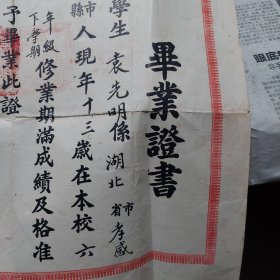 畢業證書
學生 袁先明係 湖北 省市 孝感
縣市 人現年十三歲在本校 六
年級 下學期 修業期滿成績及格准
予畢業此證